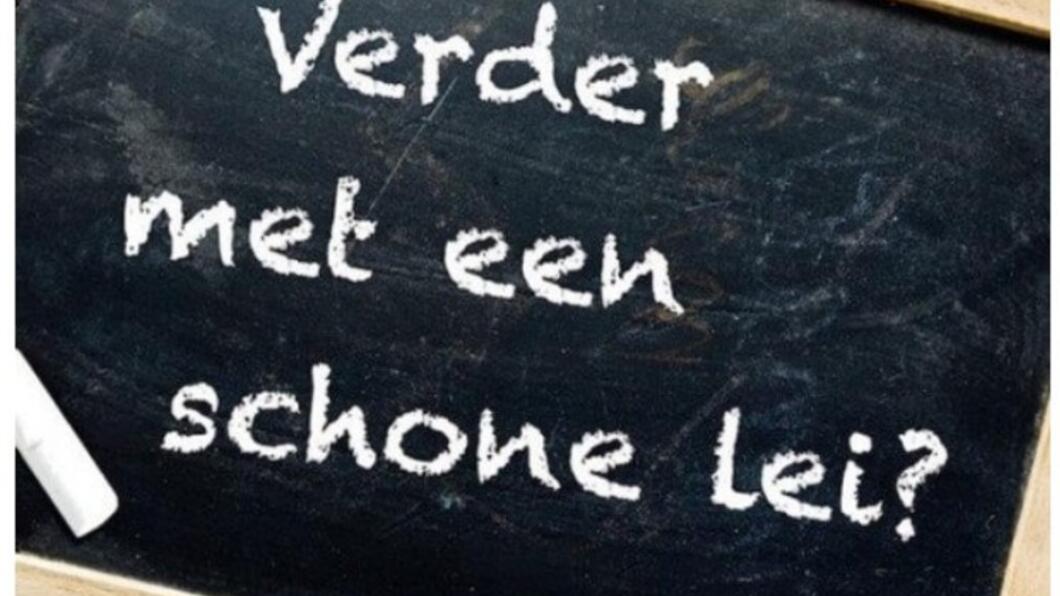 Verder
met een
schone lei?